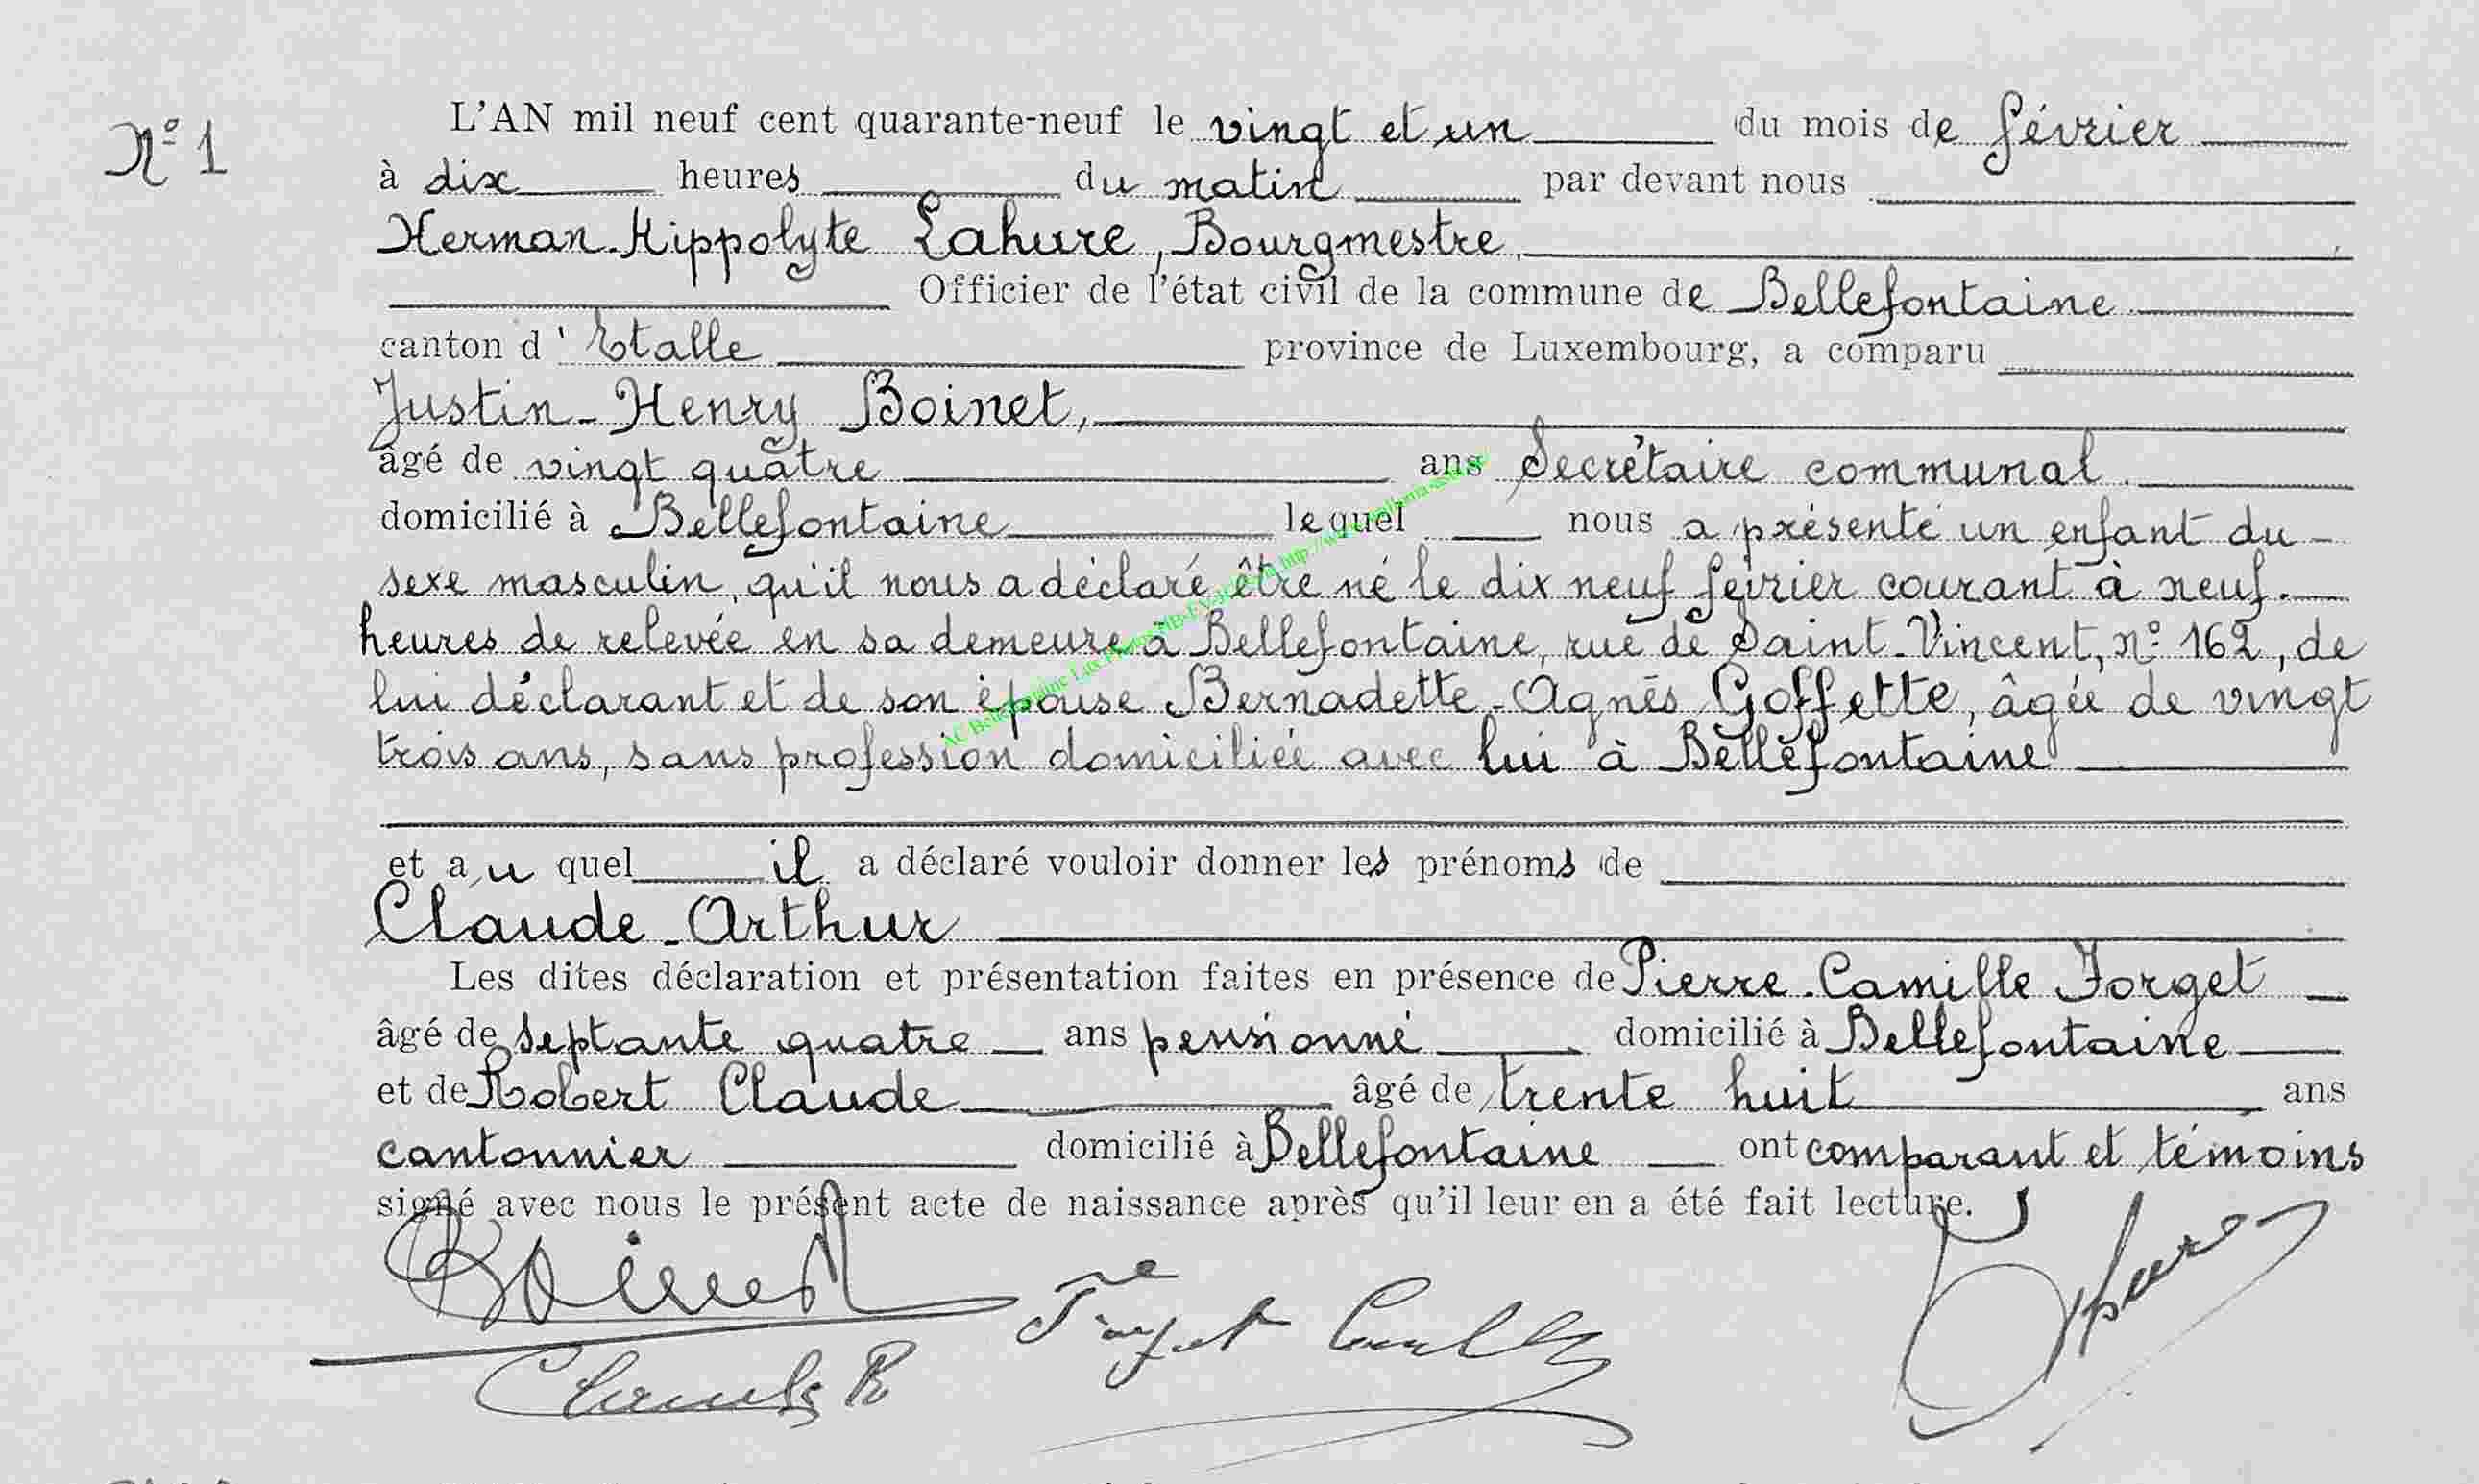 N° 1
L'AN mil neuf cent quarante-neuf le vingt et un du mois de février
à dix heures du matin par devant nous
Herman-Hippolyte Lahure, Bourgmestre,
Officier de l'état civil de la commune de Bellefontaine
canton d'Etalle province de Luxembourg, a comparu
Justin-Henry Boinet,
âgé de vingt quatre ans Secrétaire communal
domicilié à Bellefontaine lequel nous a présenté un enfant du
sexe masculin, qu'il nous a déclaré être né le dix neuf février courant à neuf
heures de relevée en sa demeure à Bellefontaine, rue de Saint-Vincent, n° 162, de
lui déclarant et de son épouse Bernadette-Agnès Goffette, âgée de vingt
trois ans, sans profession domiciliée avec lui à Bellefontaine
et au quel il a déclaré vouloir donner les prénoms de
Claude-Arthur
Les dites déclaration et présentation faites en présence de Pierre-Camille Forget
âgé de septante quatre ans pensionné domicilié à Bellefontaine
et de Robert Claude âgé de trente huit ans
cantonnier domicilié à Bellefontaine ont comparant et témoins
signé avec nous le présent acte de naissance après qu'il leur en a été fait lecture.
Boinet
Forget Camille
Lahure
Claude R